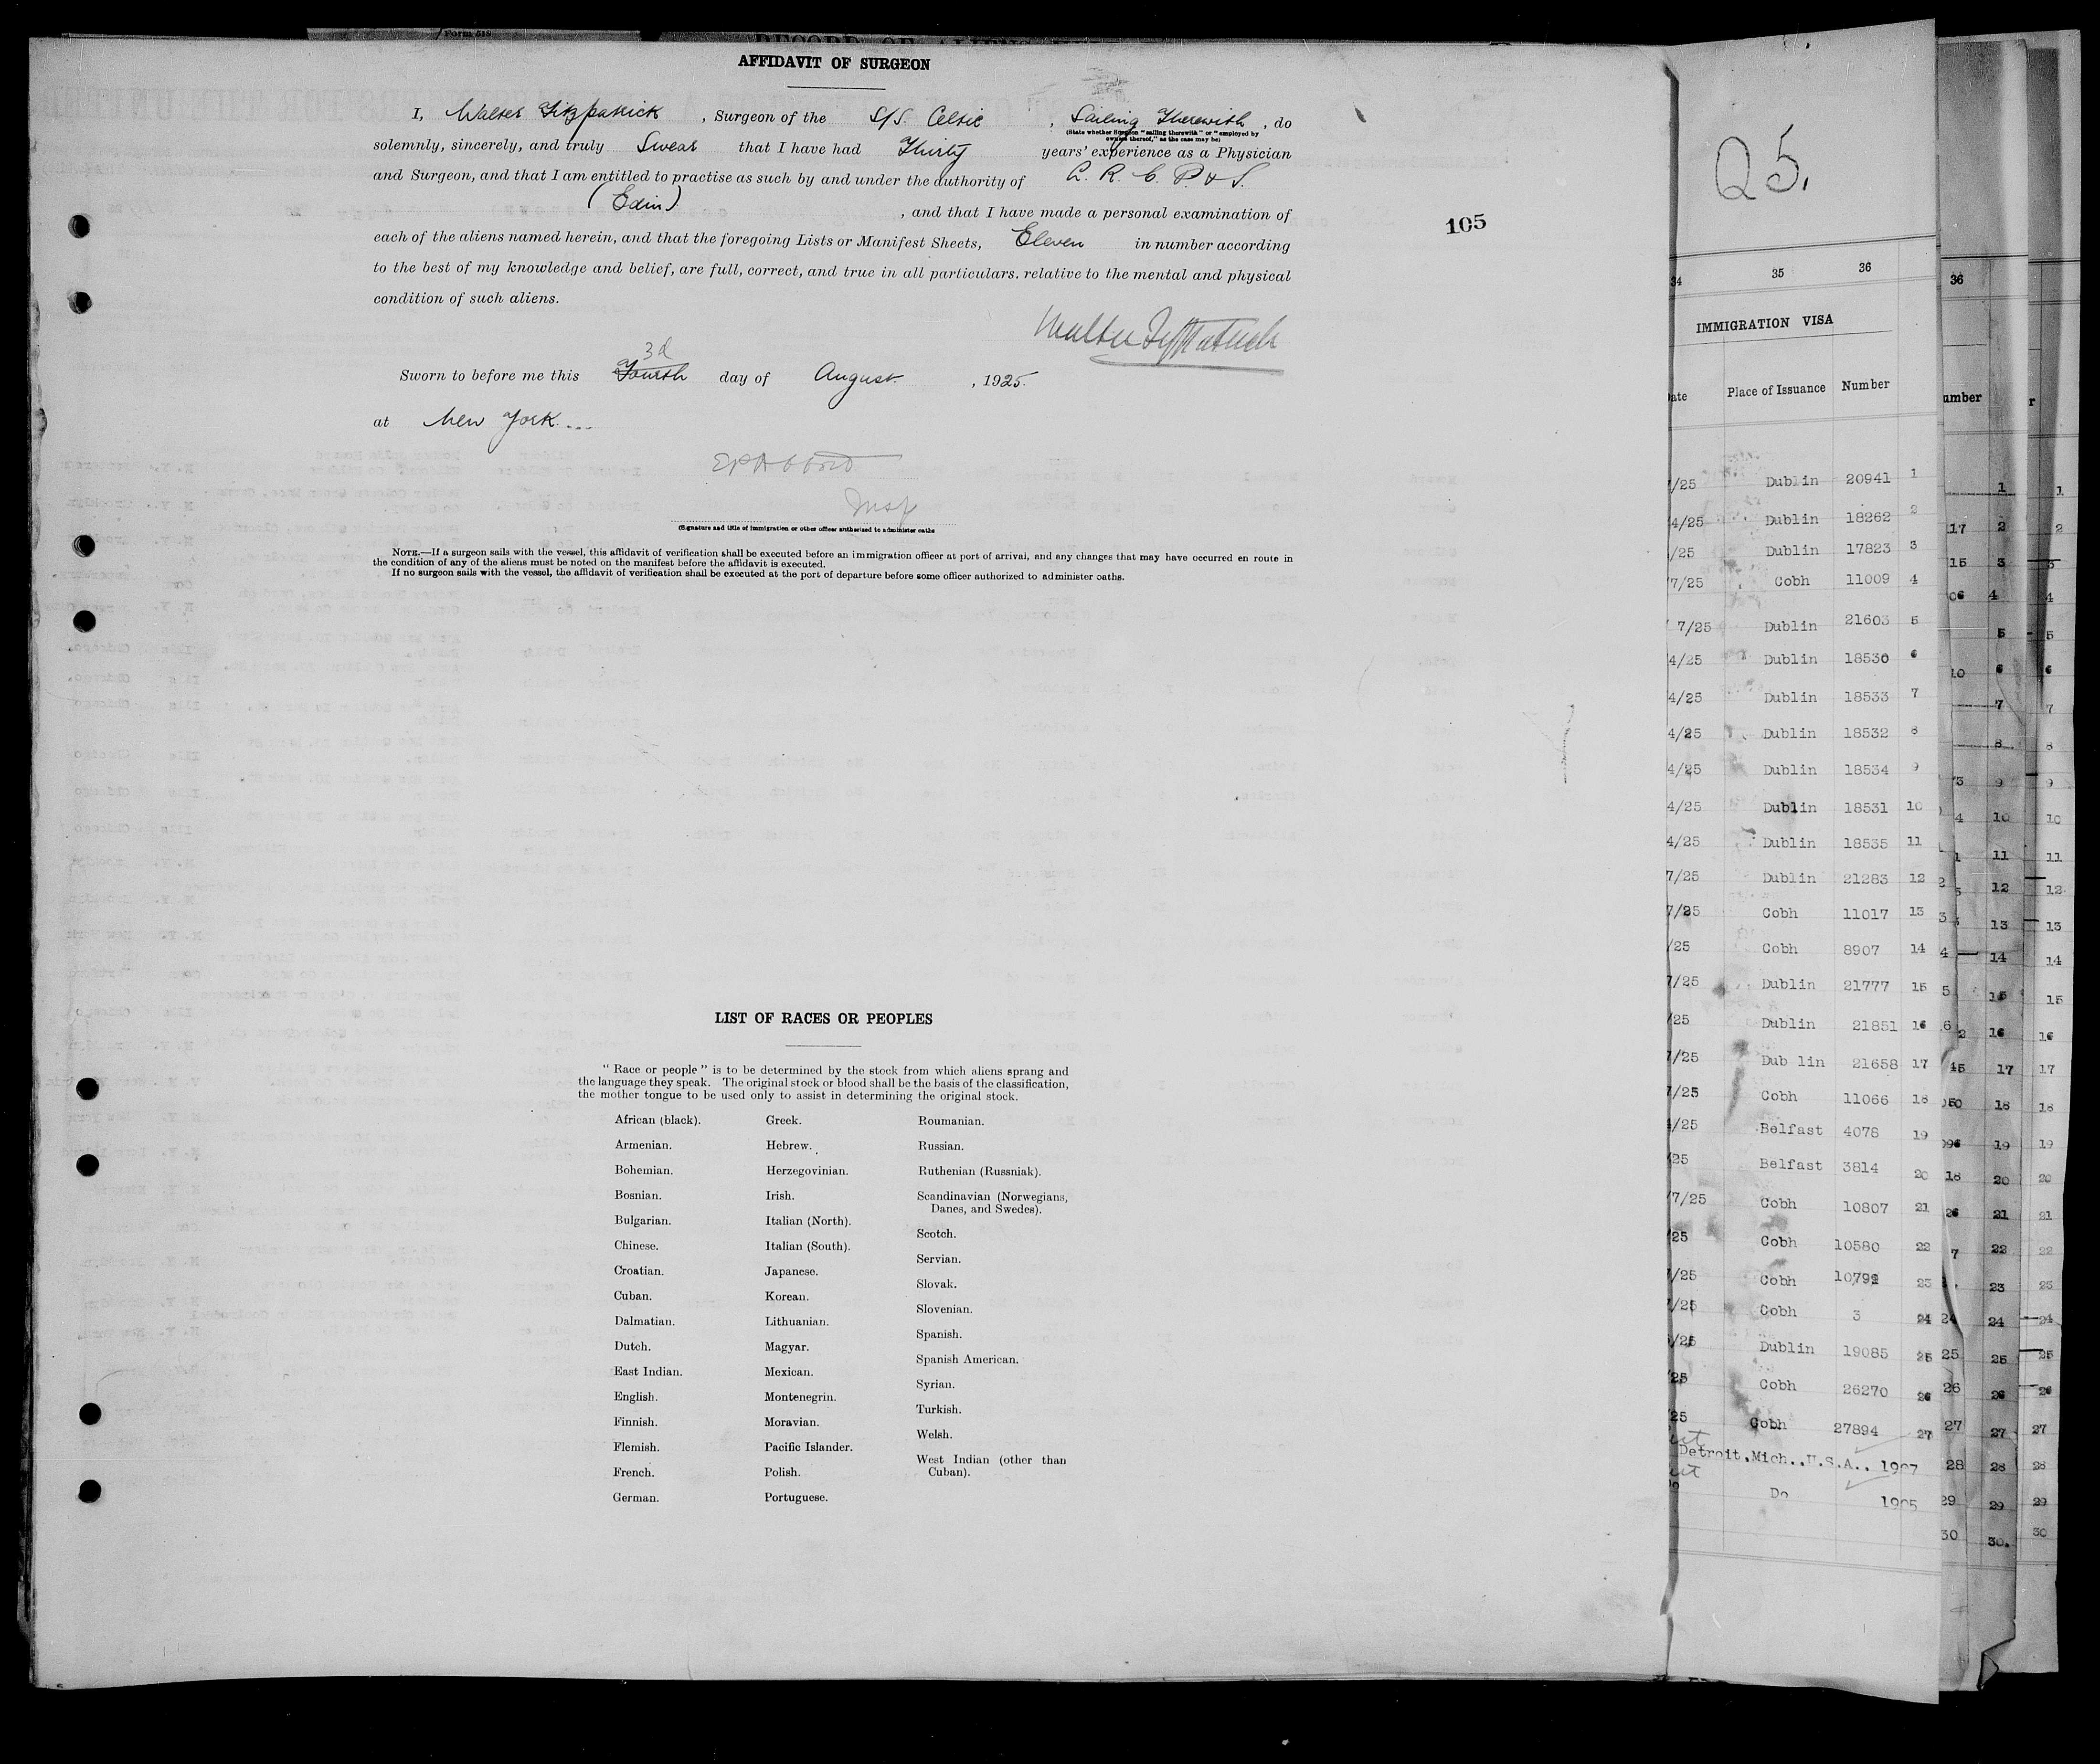 Form 519
AFFIDAVIT OF SURGEON
I, Walter Fitzpatrick, Surgeon of the S/S. Celtic, Sailing Therewith, do
(State whether Surgeon "sailing therewith" or "employed by
owners thereof," as the case may be)
solemnly, sincerely, and truly Swear that I have had Thirty years' experience as a Physician
and Surgeon, and that I am entitled to practise as such by and under the authority of L. R. C. P. & S.
(Edin), and that I have made a personal examination of
each of the aliens named herein, and that the foregoing Lists or Manifest Sheets, Eleven in number according
to the best of my knowledge and belief, are full, correct, and true in all particulars. relative to the mental and physical
condition of such aliens.
105
Walter Fitzpatrick
3d
Sworn to before me this Fourth day of August, 1925.
at New York...
(Signature and title of immigration or other officer authorized to administer oaths
NOTE.—If a surgeon sails with the vessel, this affidavit of verification shall be executed before an immigration officer at port of arrival, and any changes that may have occurred en route in
the condition of any of the aliens must be noted on the manifest before the affidavit is executed.
If no surgeon sails with the vessel, the affidavit of verification shall be executed at the port of departure before some officer authorized to administer oaths.
LIST OF RACES OR PEOPLES
"Race or people" is to be determined by the stock from which aliens sprang and
the language they speak. The original stock or blood shall be the basis of the classification,
the mother tongue to be used only to assist in determining the original stock.
African (black).
Armenian.
Bohemian.
Bosnian.
Bulgarian.
Chinese.
Croatian.
Cuban.
Dalmatian.
Dutch.
East Indian.
English.
Finnish.
Flemish.
French.
German.
Greek.
Hebrew.
Herzegovinian.
Irish.
Italian (North).
Italian (South).
Japanese.
Korean.
Lithuanian.
Magyar.
Mexican.
Montenegrin.
Moravian.
Pacific Islander.
Polish.
Portuguese.
Roumanian.
Russian.
Ruthenian (Russniak).
Scandinavian (Norwegians,
Danes, and Swedes).
Scotch.
Servian.
Slovak.
Slovenian.
Spanish.
Spanish American.
Syrian.
Turkish.
Welsh.
West Indian (other than
Cuban).
Q5.
34 35 36
IMMIGRATION VISA
ate Place of Issuance Number
/25 Dublin 20941 1
4/25 Dublin 18262 2
/25 Dublin 17823 3
7/25 Cobh 11009 4
7/25 Dublin 21603 5
4/25 Dublin 18530 6
4/25 Dublin 18533 7
4/25 Dublin 18532 8
4/25 Dublin 18534 9
4/25 Dublin 18531 10
4/25 Dublin 18535 11
7/25 Dublin 21283 12
7/25 Cobh 11017 13
/25 Cobh 8907 14
7/25 Dublin 21777 15
/25 Dublin 21851 16
7/25 Dub lin 21658 17
7/25 Cobh 11066 18
/25 Belfast 4078 19
25 Belfast 3814 20
7/25 Cobh 10807 21
25 Cobh 10580 22
/25 Cobh 10792 23
/25 Cobh 3 24
/25 Dublin 19085 25
25 Cobh 26270 26
25 Cobh 27894 27
Detroit, Mich., U.S.A., 1907 28
Do 1905 29
30
36
umber
1
17 2
15 3
06 4
5
10 6
7
8
9
4 10
11
12
13
14
15
16
17
18
19
18 20
26 21
7 22
23
24
25
26
27
28
29
30.
r
1
2
3
4
5
6
7
8
9
10
11
12
13
14
15
16
17
18
19
20
21
22
23
24
25
26
27
28
29
30